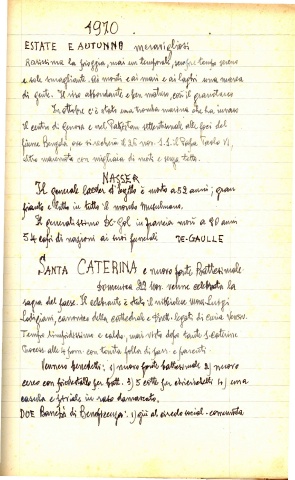 1970
ESTATE E AUTUNNO meravigliosi
Rarissima la pioggia, mai un temporale, sempre tempo sereno
e sole smagliante. Ai monti e ai mari e ai laghi una marea
di gente. Il riso abbondante e ben maturo, così il granoturco
In ottobre c'è stata una tromba marina che ha invaso
il centro di Genova e nel Pakistan settentrionale alle foci del
fiume Bengala, ove si recherà il 26 nov. s.s. il Papa Paolo VI,
altra maremoto con migliaia di morti e senza tetto.
NASSER
Il generale d'Egitto è morto a 52 anni; gran
pianto e lutto in tutto il mondo Musulmano.
Il generalissimo De-Gol in francia morì a 80 anni
54 capi di nazioni ai suoi funerali DE-GAULLE
SANTA CATERINA e nuovo fonte Battesimale
Domenica 22 nov. venne celebrata la
sagra del paese. Il celebrante è stato il mons. Luigi
canonico della cattedrale e
Tempo limpidissimo e caldo, mai visto dopo tante S. Caterine
alle 4 pom. con tanta folla di parr. e parenti.
Vennero benedetti: 1) nuovo fonte battesimale 2) nuovo
cereo con piedestallo per batt. 3) 5 cotte per chierichetti 4) una
casula e piviale in raso damascato.
DOE Bancà di Beneficenza: 1) giù al circolo social-comunista